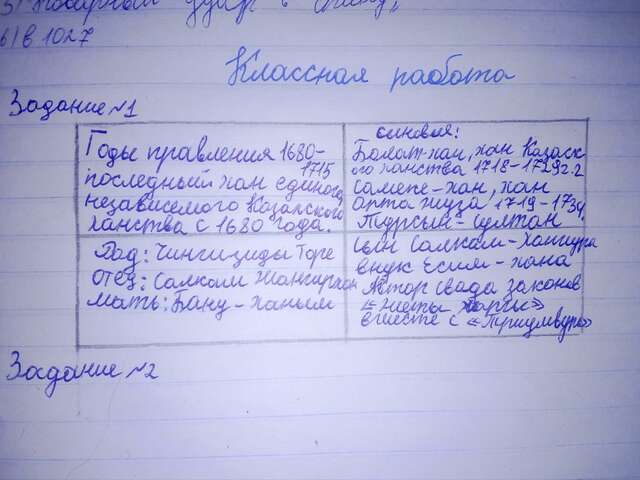 5) Пожарный удар в спину,
6) в 1027
Классная работа
Задание №1
Годы правления 1680-
1715
последный хан единого,
независемого Казахского
ханства с 1680 года.
синовья:
Болат-хан, хан Казахск
го ханства 1718-1729г.г
Самеке-хан, хан
орта жуза 1719-1734,
Турсын-султан
Род: Чингизиды Торе
отец: Салкам Жангирхан
мать: Баку-ханым
сын Салкам-Хангира
внук Есим-хана
Автор свода законов
«Жеты Жаргы»
вместе с «Триумвиро»
Задание №2